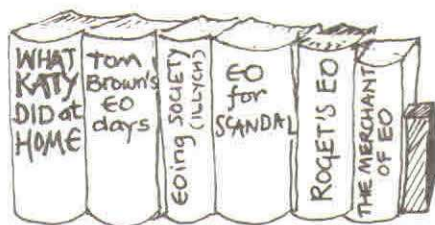 WHAT
KATY
DID at
HOME
tom
Brown's
EO
days
EOing SOCIETY
(ILLYCH)
EO
for
SCANDAL
ROGET'S EO
THE MERCHANT
OF EO